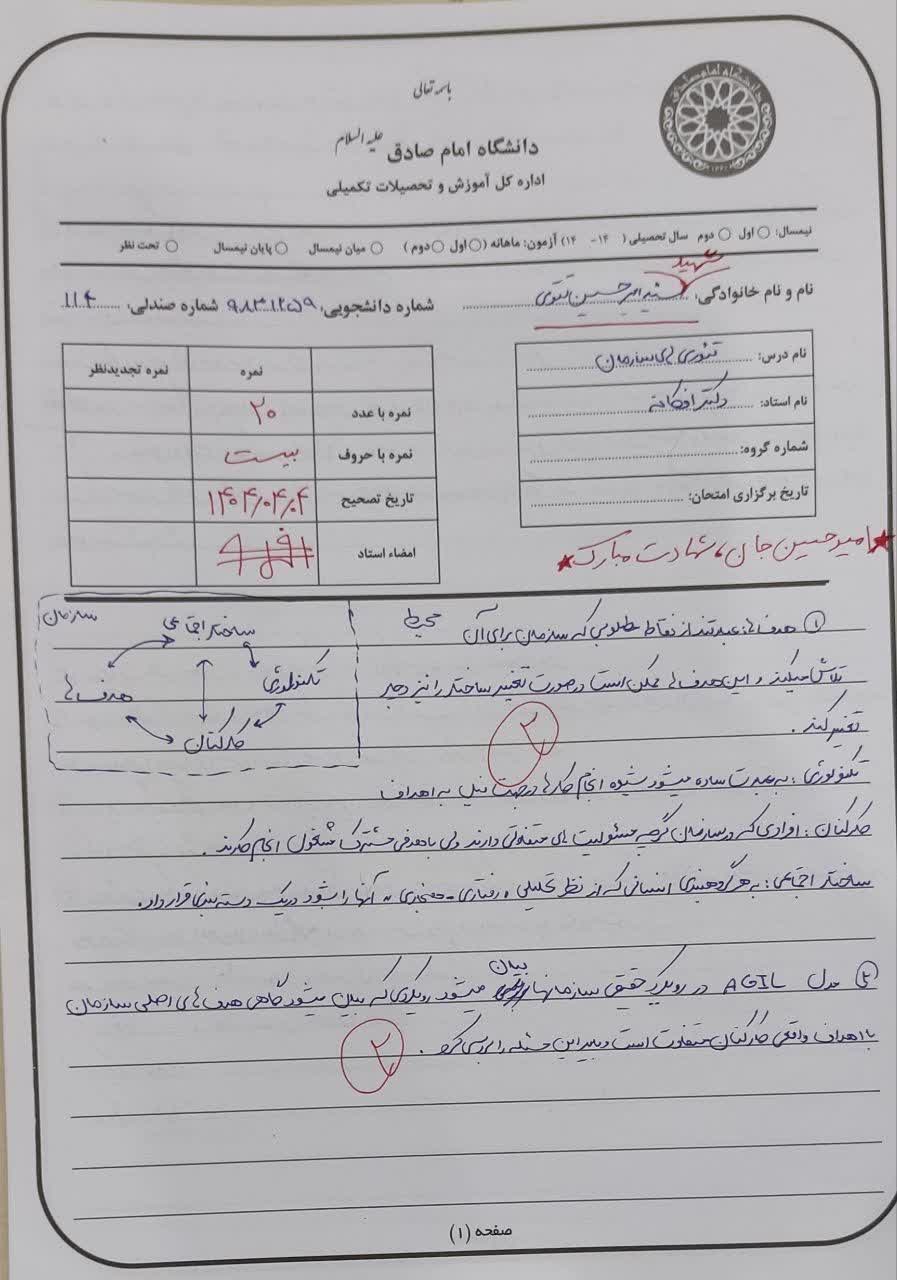 باسمه تعالی
دانشگاه امام صادق علیه السلام
اداره کل آموزش و تحصیلات تکمیلی
نیمسال: اول دوم سال تحصیلی ( ۱۴ - ۱۴ ) آزمون: ماهانه (اول دوم ) میان نیمسال پایان نیمسال تحت نظر
شهید
نام و نام خانوادگی: سید امیرحسین تقوی شماره دانشجویی: ۹۸۳۱۲۵۹ شماره صندلی: ۱۱۴
نام درس: تئوری های سازمان
نام استاد: دکتر
شماره گروه:
تاریخ برگزاری امتحان:
نمره نمره تجدیدنظر
نمره با عدد ۲۰
نمره با حروف بیست
تاریخ تصحیح ۱۴۰۴/۰۴/۰۴
امضاء استاد
امیرحسین جان، شهادت مبارک
سازمان
ساختار اجتماعی
تکنولوژی
هدف ها
کارکنان
محیط
۱ هدف ها: عبارتند از نقاط مطلوبی که سازمان برای آن
تلاش میکند و این هدف ها ممکن است در صورت تغییر ساختار را نیز دچار
تغییر کند.
۲
تکنولوژی: به عبارت ساده میشود شیوه انجام کارها در جهت نیل به اهداف
کارکنان: افرادی که در سازمان گرچه مسئولیت های متفاوتی دارند ولی با هدفی مشترک مشغول انجام کارند.
ساختار اجتماعی: به هر گروهبندی انسانی که از نظر تحلیلی، رفتاری - هنجاری به آنها را بشود در یک دسته بندی قرار داد.
۲ مدل AGIL در رویکرد حقیقی سازمانها بیان میشود رویکردی که بیان میشود گاهی هدف های اصلی سازمان
با اهداف واقعی کارکنان متفاوت است و باید این مسئله را بررسی کرد.
۲
صفحه (۱)